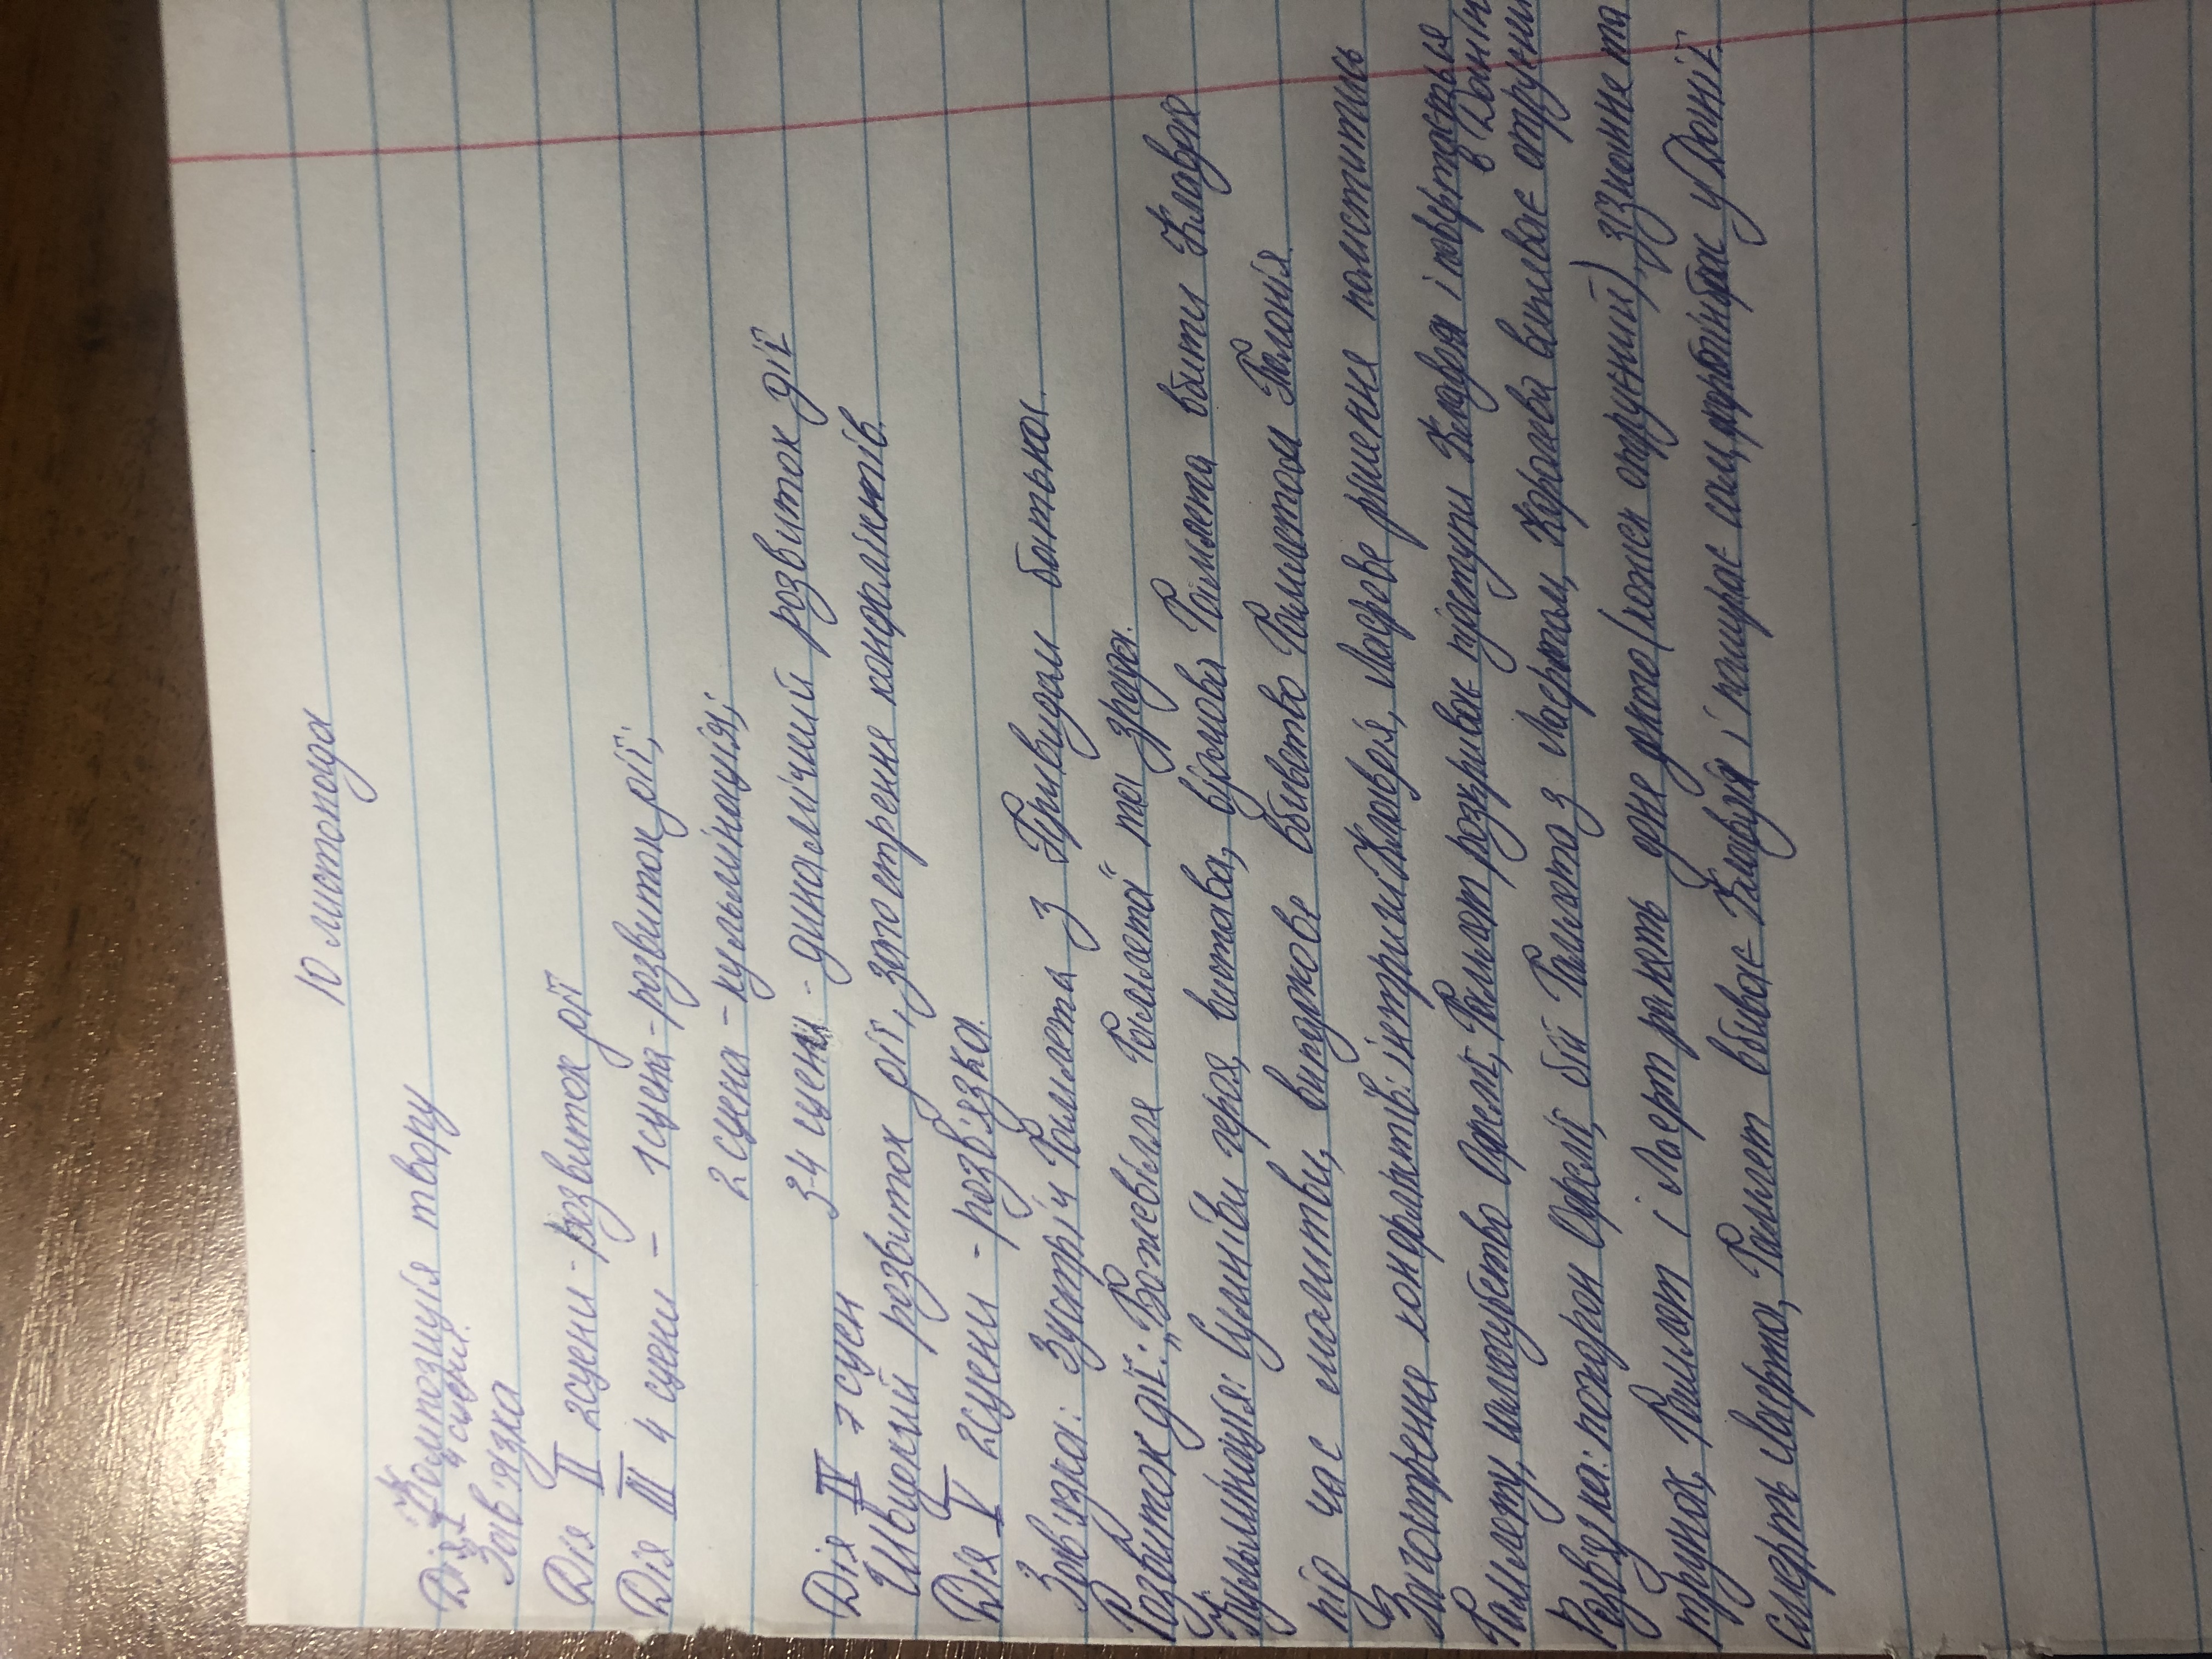 10 листопада
Композиція твору
Дія I 4 сцени.
Зав'язка
Дія II 2 сцени - розвиток дії
Дія III 4 сцени - 1 сцена - розвиток дії;
2 сцена - кульмінація;
3-4 сцени - динамічний розвиток дії
Дія IV 7 сцен
Швидкий розвиток дії, загострення конфліктів.
Дія V 2 сцени - розв'язка.
Зав'язка: Зустріч Гамлета з Привидом батька.
Розвиток дії: „Божевілля" Гамлета та зрада.
Кульмінація: Сумніви героя, вистава, відмова Гамлета вбити Клавдія
під час молитви, випадкове вбивство Гамлетом Полонія.
Загострення конфліктів: інтриги Клавдія, Лаертове рішення помститись
Гамлету, самогубство Офелії, Гамлет розкриває підступи Клавдія і повертається в Данію
Розв'язка: похорон Офелії, бій Гамлета з Лаертом, Королева випиває отруєний
трунок, Гамлет і Лаерт ранять одне одного (кожен отруєний), зізнання та
смерть Лаерта, Гамлет вбиває Клавдія і помирає сам, у Данії.